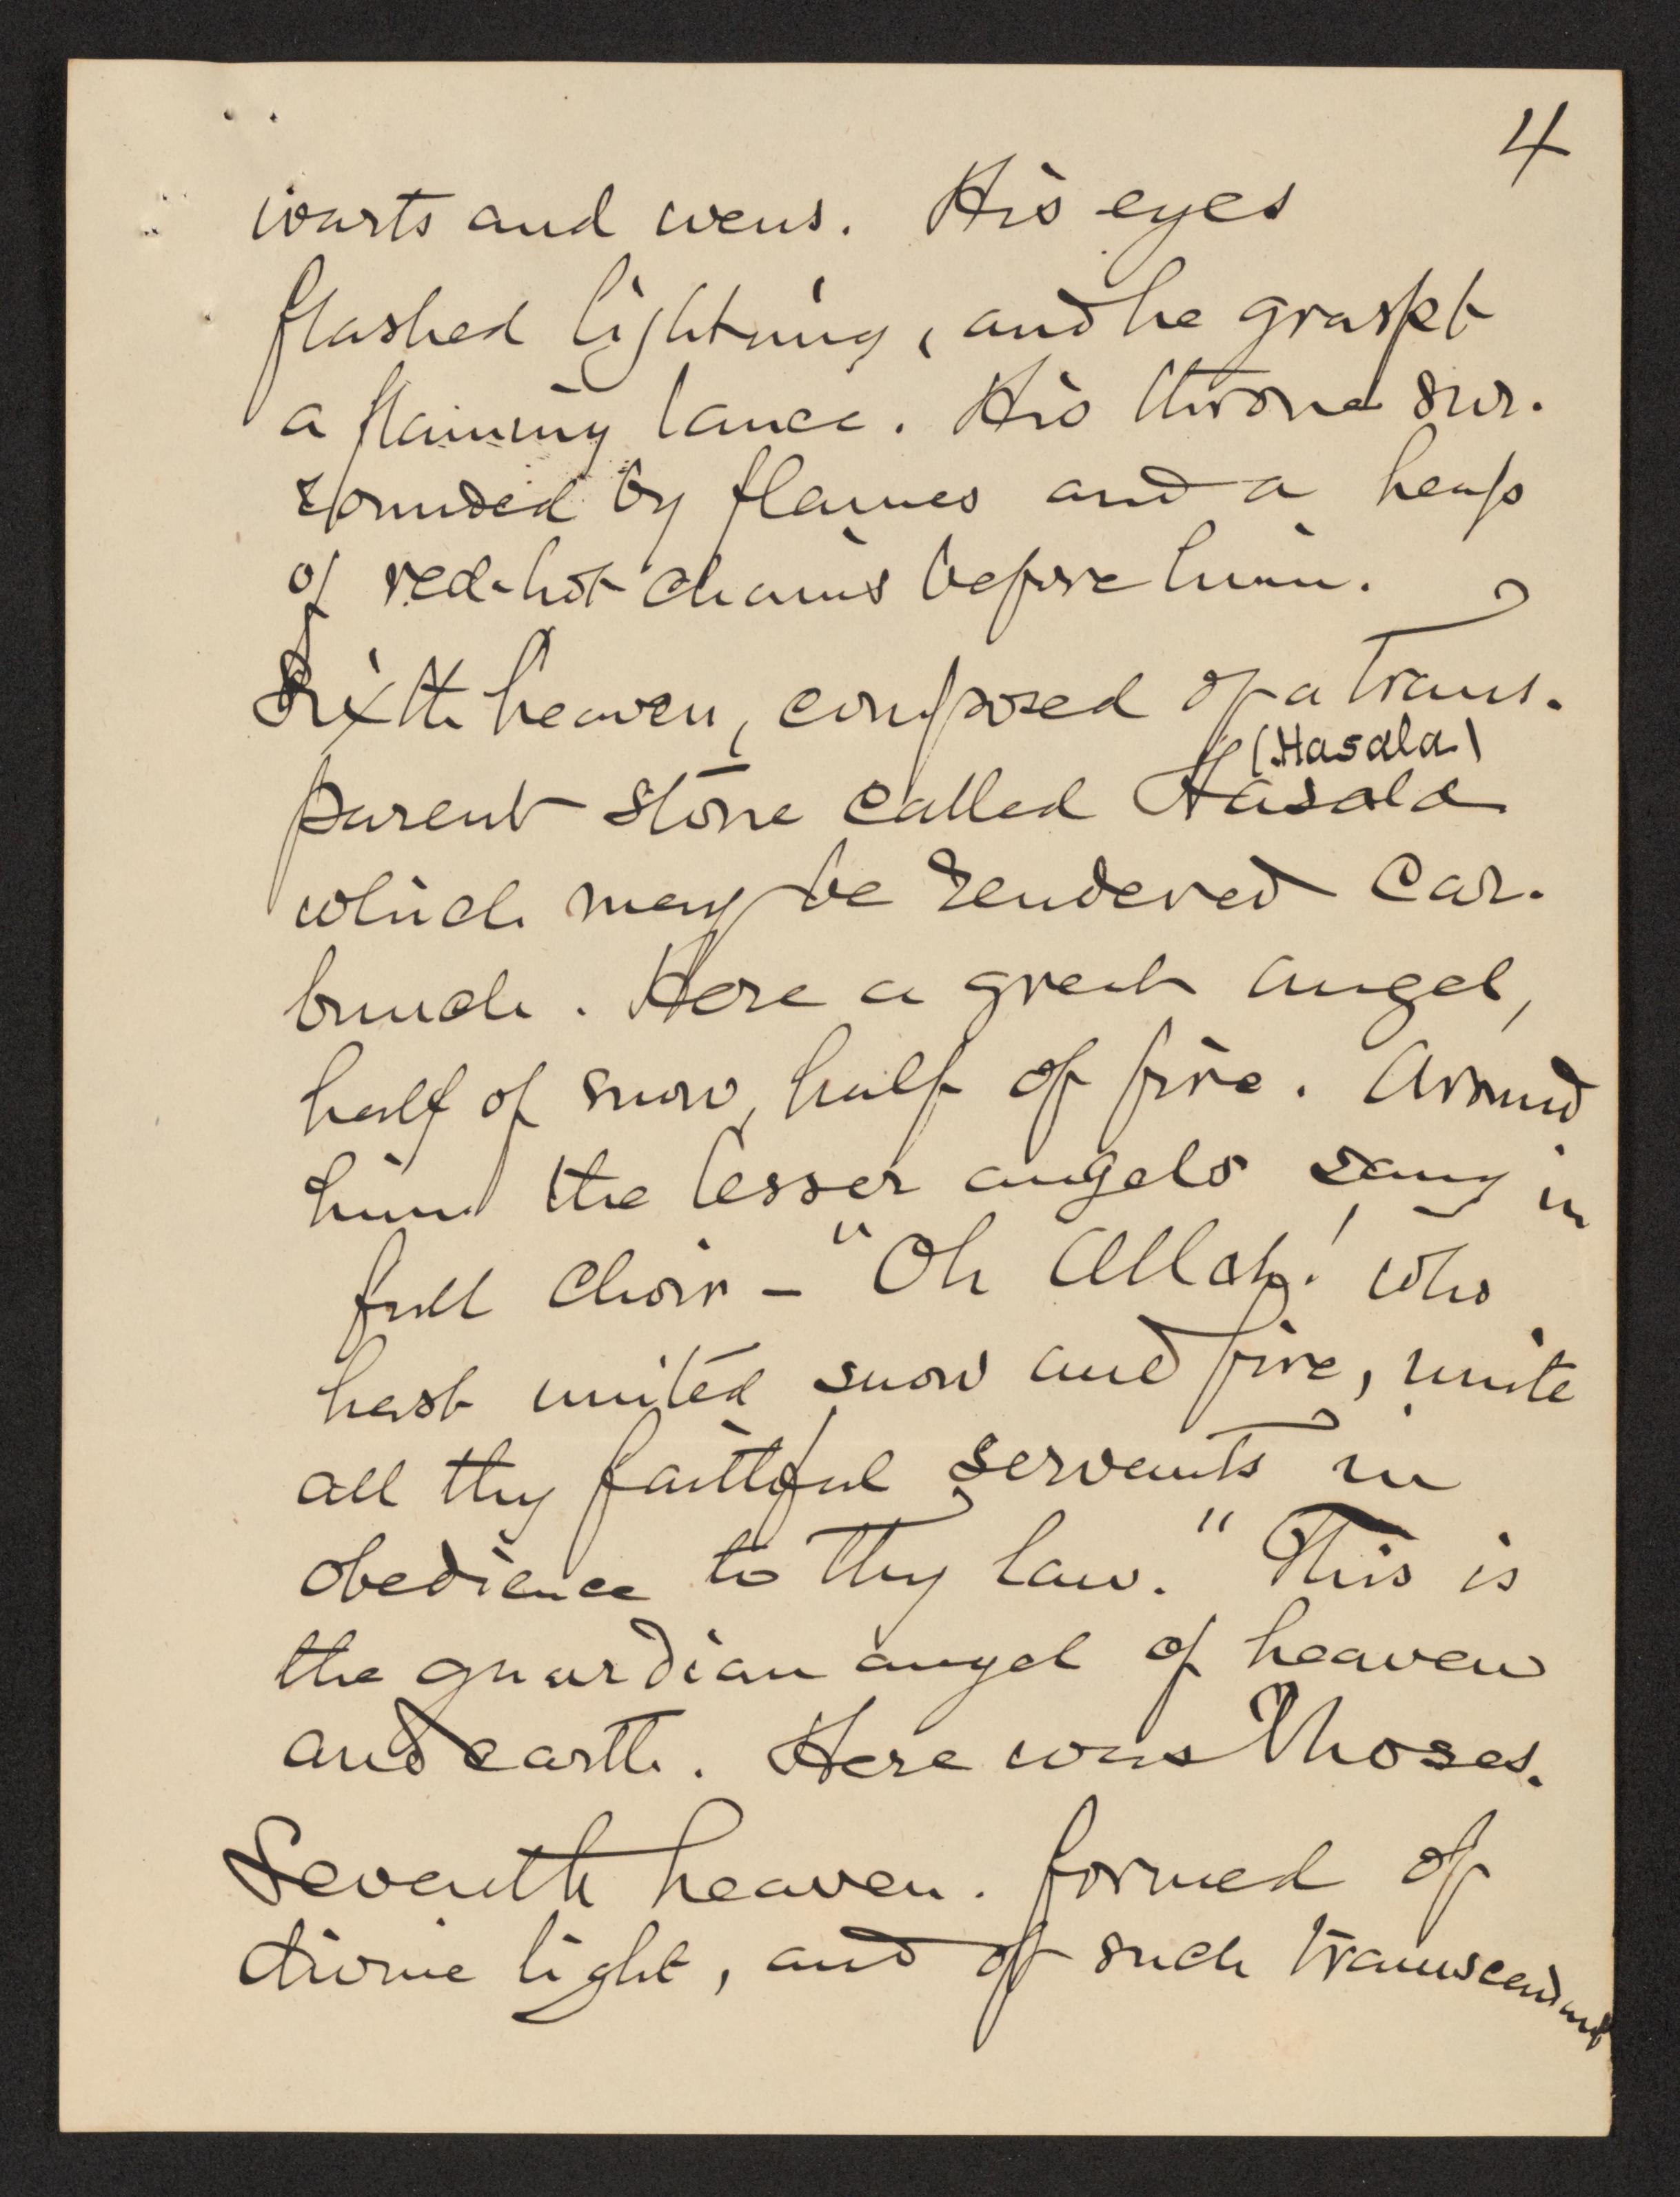 4
warts and wens. His eyes
flashed lightning, and he graspt
a flaming lance. His throne sur-
rounded by flames and a heap
of red-hot chains before him.
Sixth heaven, composed of a trans-
(Hasala)
parent stone called Hasala
which may be rendered Car-
buncle. Here a great angel,
half of snow, half of fire. Around
him the lesser angels sang in
full choir - "Oh Allah! who
hast united snow and fire, unite
all thy faithful servants in
obedience to Thy law." This is
the guardian angel of heaven
and earth. Here was Moses.
Seventh heaven. formed of
divine light, and of such transcendant